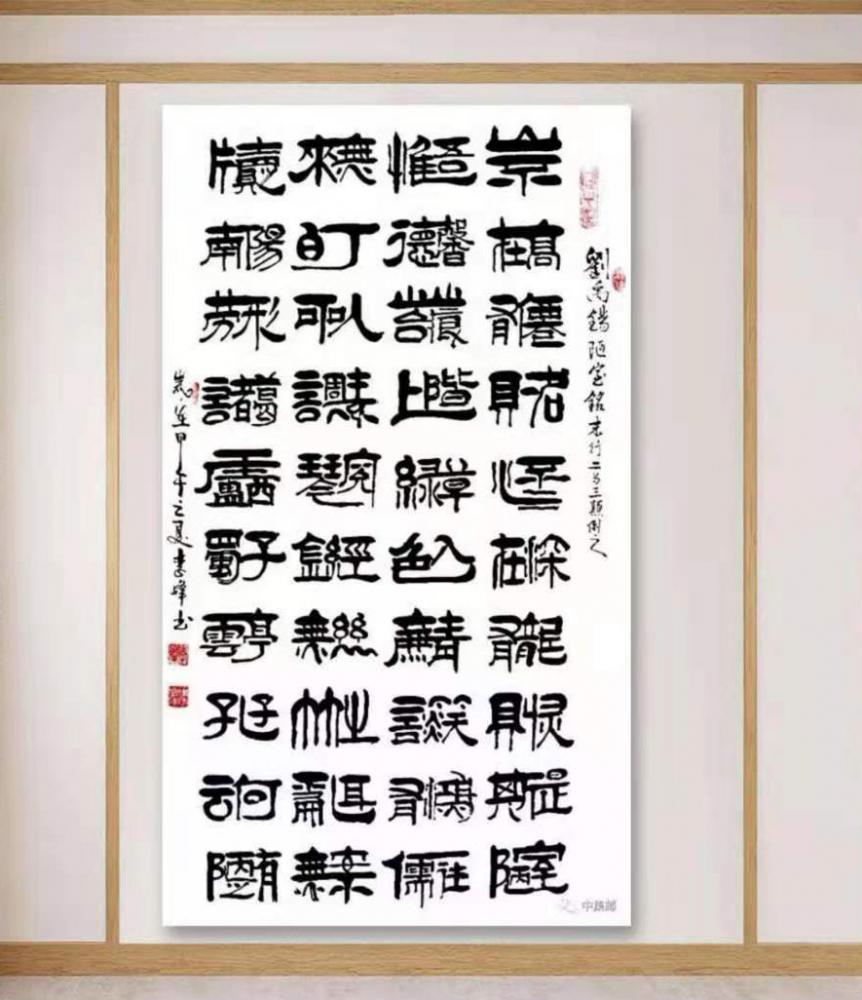 劉禹錫陋室銘末行二与三顛倒之
山不在高有僊則名水不在深有龍則灵斯是陋室
惟吾德馨苔痕上階綠草色入簾青談笑有鴻儒往
來無白丁可以調素琴閱金經無絲竹之亂耳無案
牘之南陽勞形諸葛廬西蜀子雲亭孔子云何陋之有
歲在甲午之夏李峰书